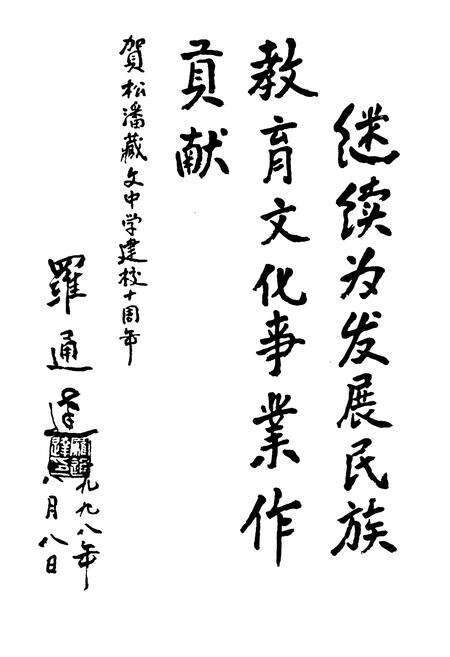 继续为发展民族
教育文化事業作
贡献
賀松潘藏文中学建校十周年
羅通达
一九九八年
八月八日